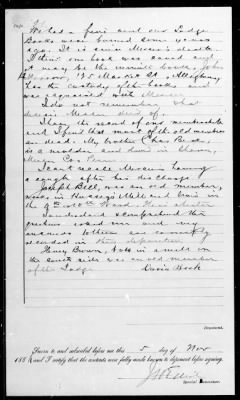 We had a fire and our Lodge
Books were burned some years
ago. It is since Moser's death.
I think one book was saved and
it may be the minute book. John
195 Market St, Allegheny
has the custody of the books and
was acquainted with Moser.
I do not remember what
Moser died of.
I have the record of our membership
and I find that most of the old members
are dead. My brother Chas Beck,
is a molder and lives in Sharon,
Mercer Co. Penn
I can't recall Moser's having
a cough after his discharge
Joseph Bell, was an old member,
works in Mill and lives in
the 9th or 10th Ward,
I understand & comprehend the
questions asked me and my
answers to them are correctly
recorded in this deposition
Henry Brown, works in a mill on
the south side was an old member
of the Lodge
Deponent.
Sworn to and subscribed before me this 5 day of Nov
188 , and I certify that the contents were fully made known to deponent before signing.
Special Examiner.